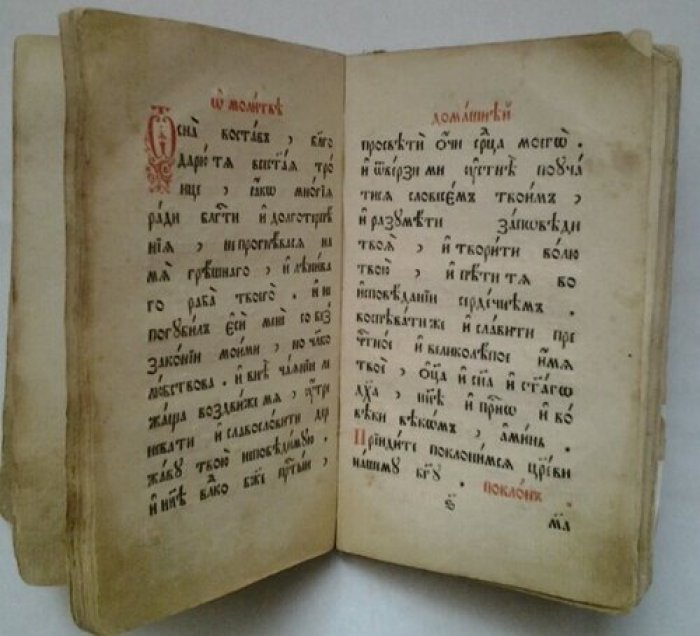 Ѿ моли́твѣ
Ѿ сна̀ воста́въ , благо
дарю̀ тѧ всест҃а́ѧ тро́
ице , ꙗ҆́кѡ мно́гїѧ
ра́ди бл҃гти и҆ долготерпѣ
нїѧ , не прогнѣ́васѧ на
мѧ̀ грѣ́шнаго , и҆ лѣни́ва
го раба̀ твоего̀ . и҆ не
погуби́лъ є҆сѝ менѐ со беꙁ
ꙁако́нїи мои́ми , но чл҃ко
лю́бствова . и҆ в̾не ча́ѧнїи ле
жа́ща воꙁдви́же мѧ , оу҆́тре
невати и҆ славосло́вити дер
жа́ву твою̀ непобѣди́мую .
и҆ нн҃ѣ влⷣко бж҃е прч҃тый ,
дома́шнѣй
просвѣтѝ о҆́чи срⷣца моегѡ̀ .
и҆ ѿве́рꙁи ми оу҆стнѣ̀ поуча́
тисѧ словесе́мъ твои́мъ ,
и҆ раꙁумѣ́ти ꙁа́повѣди
твоѧ̀ , и҆ твори́ти во́лю
твою̀ , и҆ пѣ́ти тѧ во
и҆сповѣ́данїи серде́чнемъ .
воспѣва́ти же и҆ сла́вити пре
чⷭ҇тно́е и҆ великолѣ́пое и҆́мѧ
твоѐ , о҆ц҃а̀ и҆ сн҃а и҆ ст҃а́гѡ
дх҃а , нн҃ѣ и҆ при́снѡ и҆ во
вѣ́ки вѣкѡ́мъ , а҆ми́нь .
Прїиди́те поклони́мсѧ цр҃е́ви
на́шему бг҃у . покло́нъ
ма